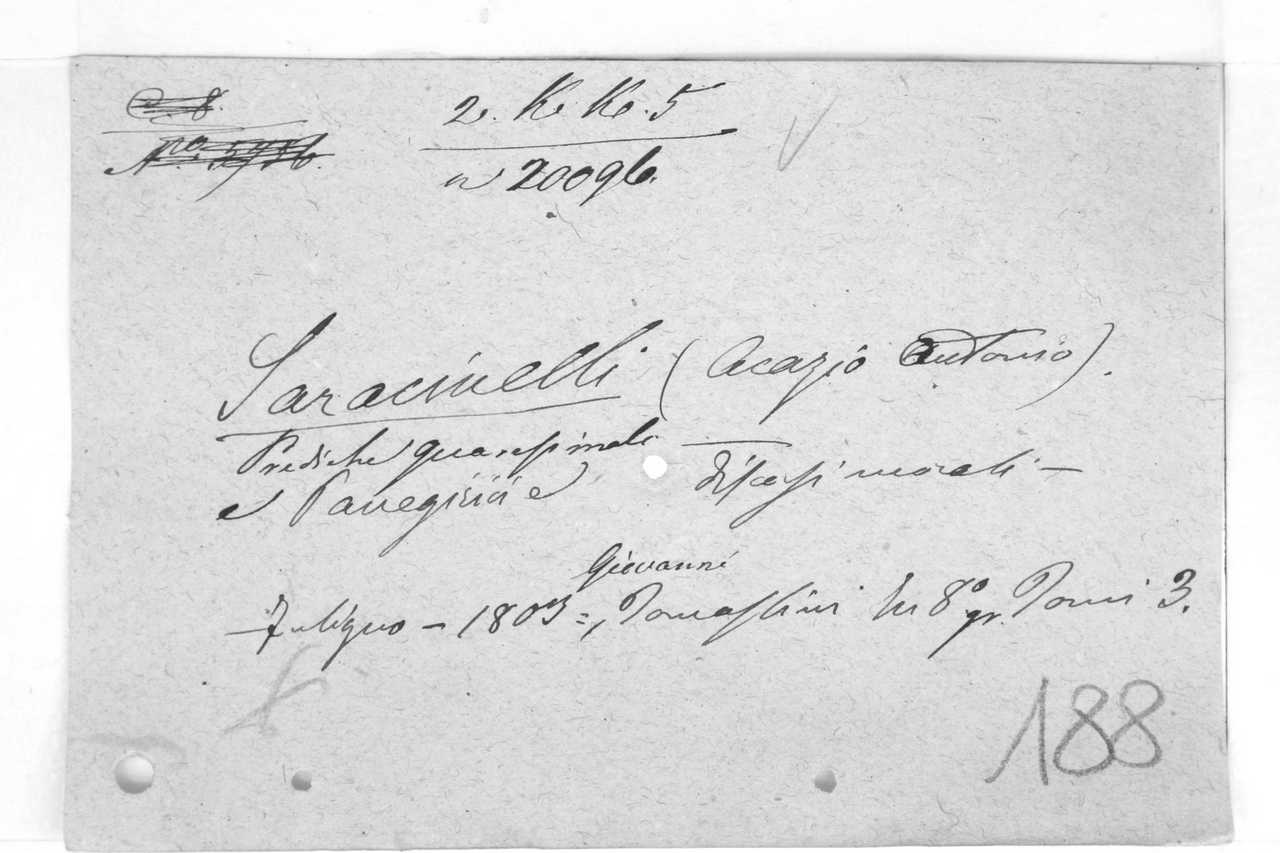 C. 8.
2. K. K. 5
n 20096.
Saracinelli (Acazio Antonio).
Prediche quaresimali —
e Panegirici e discorsi morali —
Giovanni
— Fuligno — 1803 =, Tomassini In 8º gr. Tomi 3.
188